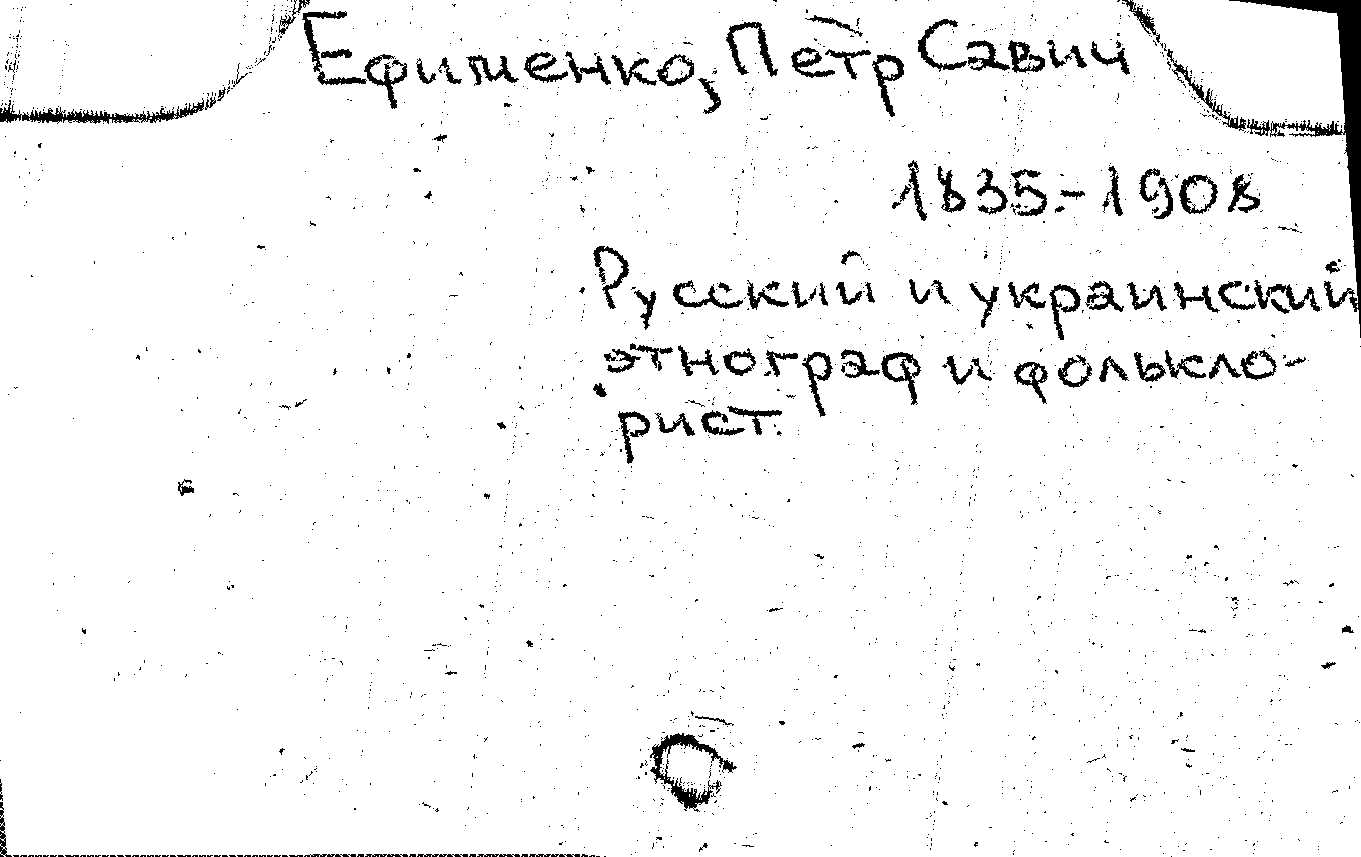 Ефименко, Петр Савич
1835-1908
Русский и украинский
этнограф и фолькло-
рист.